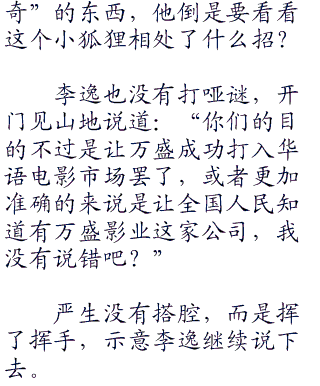 奇”的东西，他倒是要看看
这个小狐狸相处了什么招？
李逸也没有打哑谜，开
门见山地说道：“你们的目
的不过是让万盛成功打入华
语电影市场罢了，或者更加
准确的来说是让全国人民知
道有万盛影业这家公司，我
没有说错吧？”
严生没有搭腔，而是挥
了挥手，示意李逸继续说下
去。